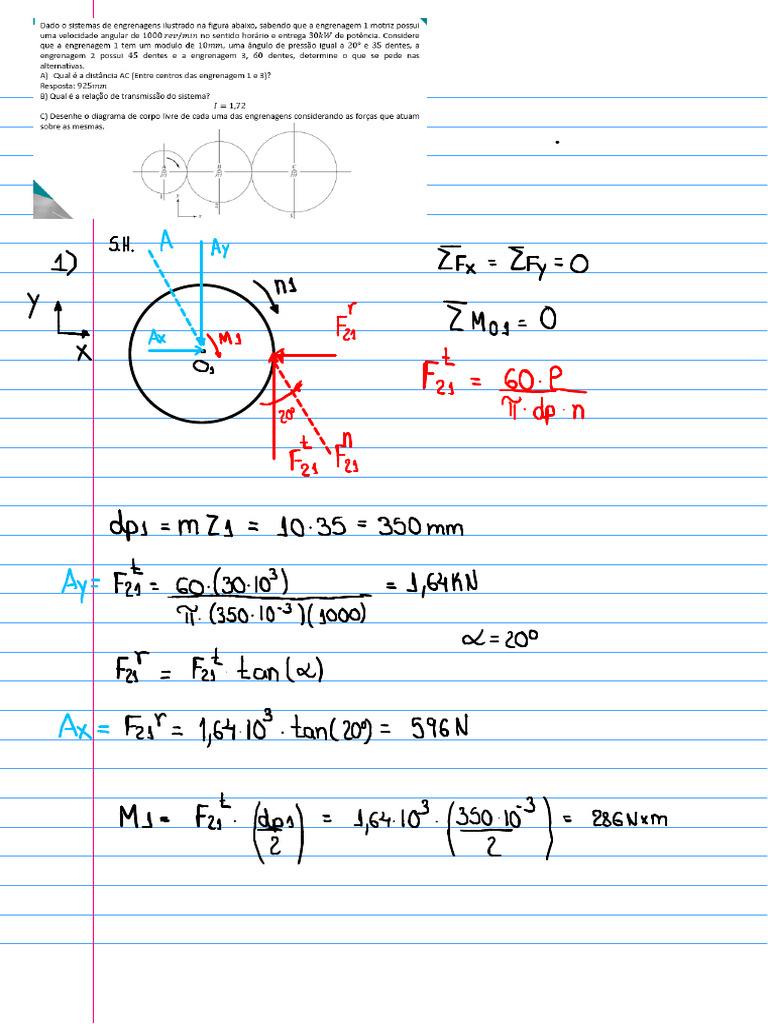 Dado o sistemas de engrenagens ilustrado na figura abaixo, sabendo que a engrenagem 1 motriz possui
uma velocidade angular de 1000 rev/min no sentido horário e entrega 30kW de potência. Considere
que a engrenagem 1 tem um modulo de 10mm, uma ângulo de pressão igual a 20° e 35 dentes, a
engrenagem 2 possui 45 dentes e a engrenagem 3, 60 dentes, determine o que se pede nas
alternativas.
A) Qual é a distância AC (Entre centros das engrenagem 1 e 3)?
Resposta: 925mm
B) Qual é a relação de transmissão do sistema?
I = 1,72
C) Desenhe o diagrama de corpo livre de cada uma das engrenagens considerando as forças que atuam
sobre as mesmas.
1) S.H. A Ay
n1
ΣFx = ΣFy = 0
y
x
Ax
M1
O1
F21^r
ΣM01 = 0
20°
F21^t F21^n
F21^t = 60·P / π·dp·n
dp1 = m Z1 = 10·35 = 350mm
Ay = F21^t = 60·(30·10^3) / π·(350·10^-3)(1000) = 1,64KN
α = 20°
F21^r = F21^t · tan(α)
Ax = F21^r = 1,64·10^3 · tan(20°) = 596N
M1 = F21^t · (dp1/2) = 1,64·10^3 · (350·10^-3/2) = 286N×m